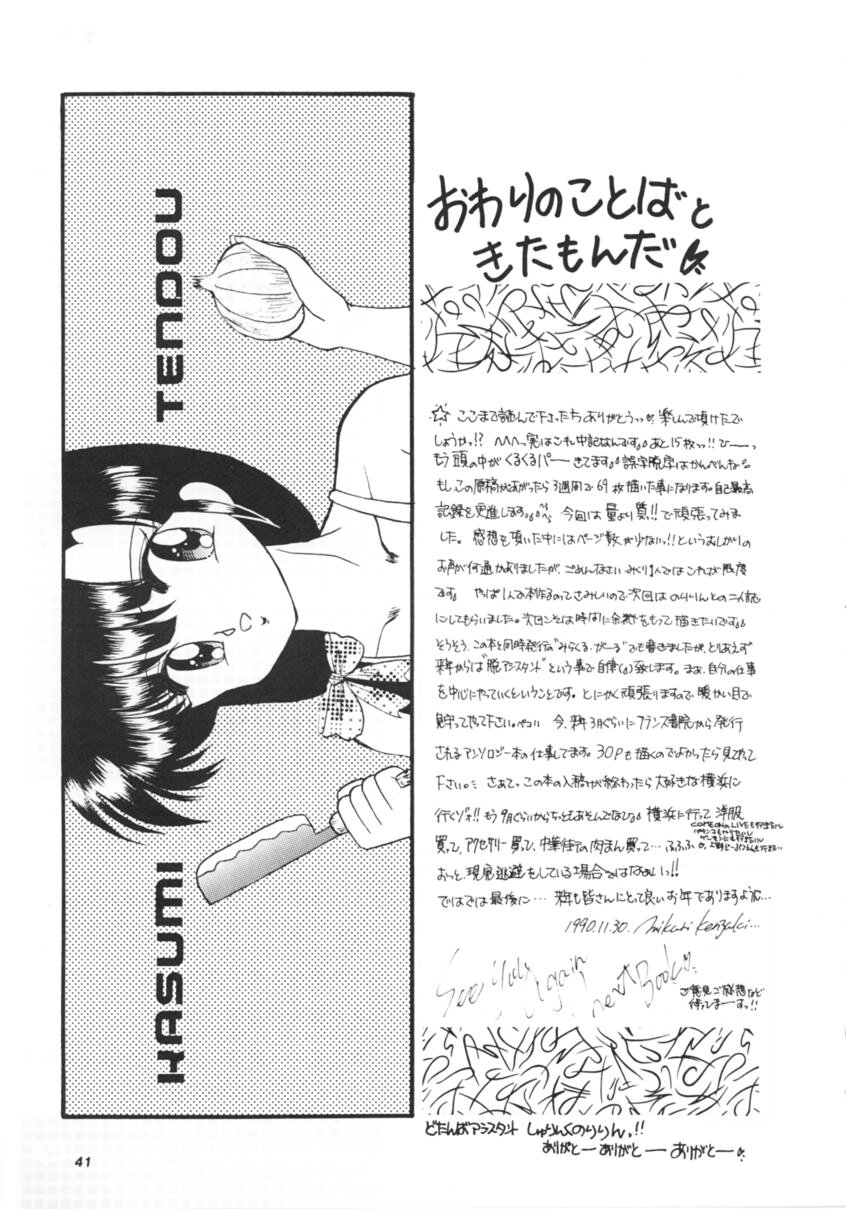 おわりのことばと
きたもんだ
☆ここまで読んで下さったちありがとうっ。楽しんで頂けたで
しょうかっ!? へへへっ実はこれ中記なんです。あと15枚っ!!ひーーっ
もう頭の中がくるくるパーーきてます。誤字脱字はかんべんね。
もし、この原稿があがったら3週間で69枚描いた事になります。自己最高
記録を更進しますっ。今回は量より質っ!!で頑張ってみま
した。感想を頂いた中にはページ数が少ないっ!!というおしかりの
お声が何通かありましたが、ごめんなさいみくり1人ではこれが限度
です。やっぱ1人で本作るのってさみしいので次回はのりりんとの二人誌
にしてもらいました。次回こそは時間に余裕をもって描きたいです。
そうそう、この本と同時発行の“みらくる・がーる”でも書きましたが、とりあえず
来年からは“脱アシスタント”という事で自律(。)致します。まぁ、自分の仕事
を中心にやっていくということです。とにかく頑張りますので、暖かい目で
見守ってやって下さい。ペコ!! 今、来年3月ぐらいにフランス書院から発行
されるアンソロジー本の仕事してます。30Pも描くのでよかったら見てやって
下さい。さぁてっこの本の入稿が終わったら大好きな横浜に
行くゾォ!!もう9月ぐらいからちっともあそんでないし。横浜に行って洋服
COME ON LIVEも行きたいし
買って、アクセサリー買って、中華街での肉まん買って…ふふふ
おっと、現実逃避をしている場合ではなぁいっ!!
ではでは最後に…来年も皆さんにとって良いお年でありますように…
1990.11.30. Mikuri Kenzaki...
See You Again
next Book
ご意見ご感想など
待ってまーすっ!!
どたんばアシスタント しゅりんくのりりんっ!!
ありがとーありがとーーありがとー
TENDOU
KASUMI
41